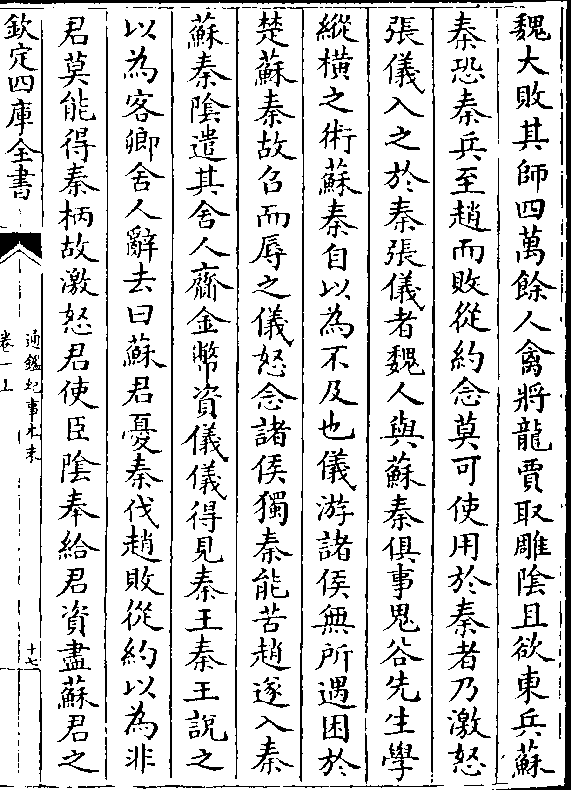 魏大敗其師四萬餘人禽將龍賈取雕隂且欲東兵蘇
秦恐秦兵至趙而敗從約念莫可使用於秦者乃激怒
張儀入之於秦張儀者魏人與蘇秦俱事鬼谷先生學
縱橫之術蘇秦自以為不及也儀游諸侯無所遇困於
楚蘇秦故召而辱之儀怒念諸侯獨秦能苦趙遂入秦
蘇秦隂遣其舍人齎金幣資儀儀得見秦王秦王說之
以為客卿舍人辭去曰蘇君憂秦伐趙敗從約以為非
君莫能得秦柄故激怒君使臣隂奉給君資盡蘇君之
欽定四庫全書
通鑑紀事本末
卷一上
十七